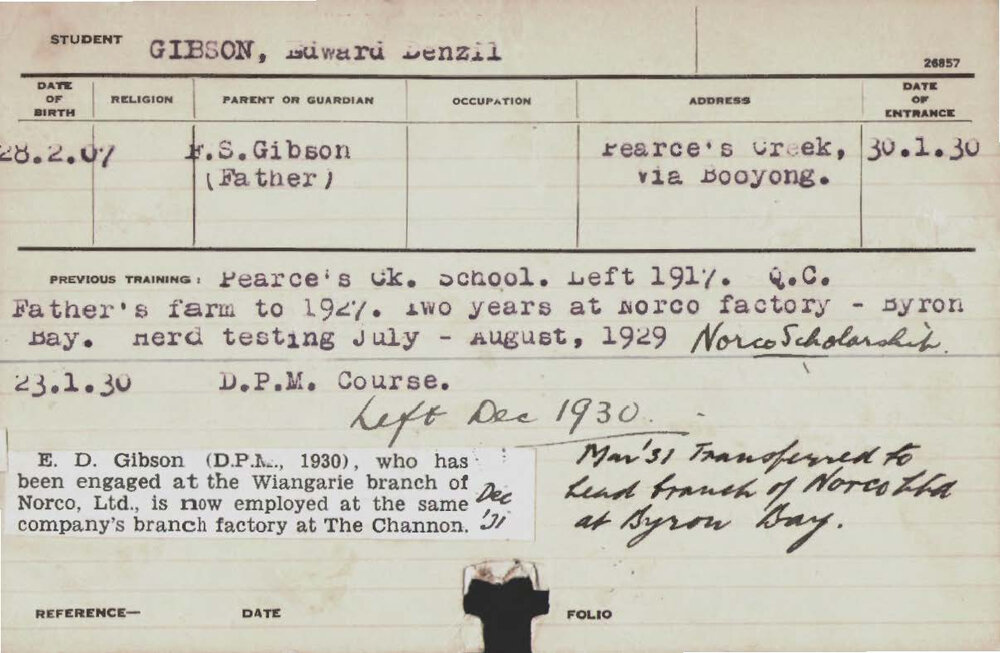 STUDENT GIBSON, Edward Denzil
26857
DATE OF BIRTH RELIGION PARENT OR GUARDIAN OCCUPATION ADDRESS DATE OF ENTRANCE
28.2.07 F.S.Gibson Pearce's Creek, 30.1.30
(Father) via Booyong.
PREVIOUS TRAINING: Pearce's Ck. School. Left 1917. Q.C.
Father's farm to 1927. Two years at Norco factory - Byron
Bay. Herd testing July - August, 1929 Norco Scholarship.
23.1.30 D.P.M. Course.
Left Dec 1930.
E. D. Gibson (D.P.M., 1930), who has
been engaged at the Wiangarie branch of
Norco, Ltd., is now employed at the same
company's branch factory at The Channon.
Dec
'31
Mar '31 Transferred to
head branch of Norco Ltd
at Byron Bay.
REFERENCE— DATE FOLIO